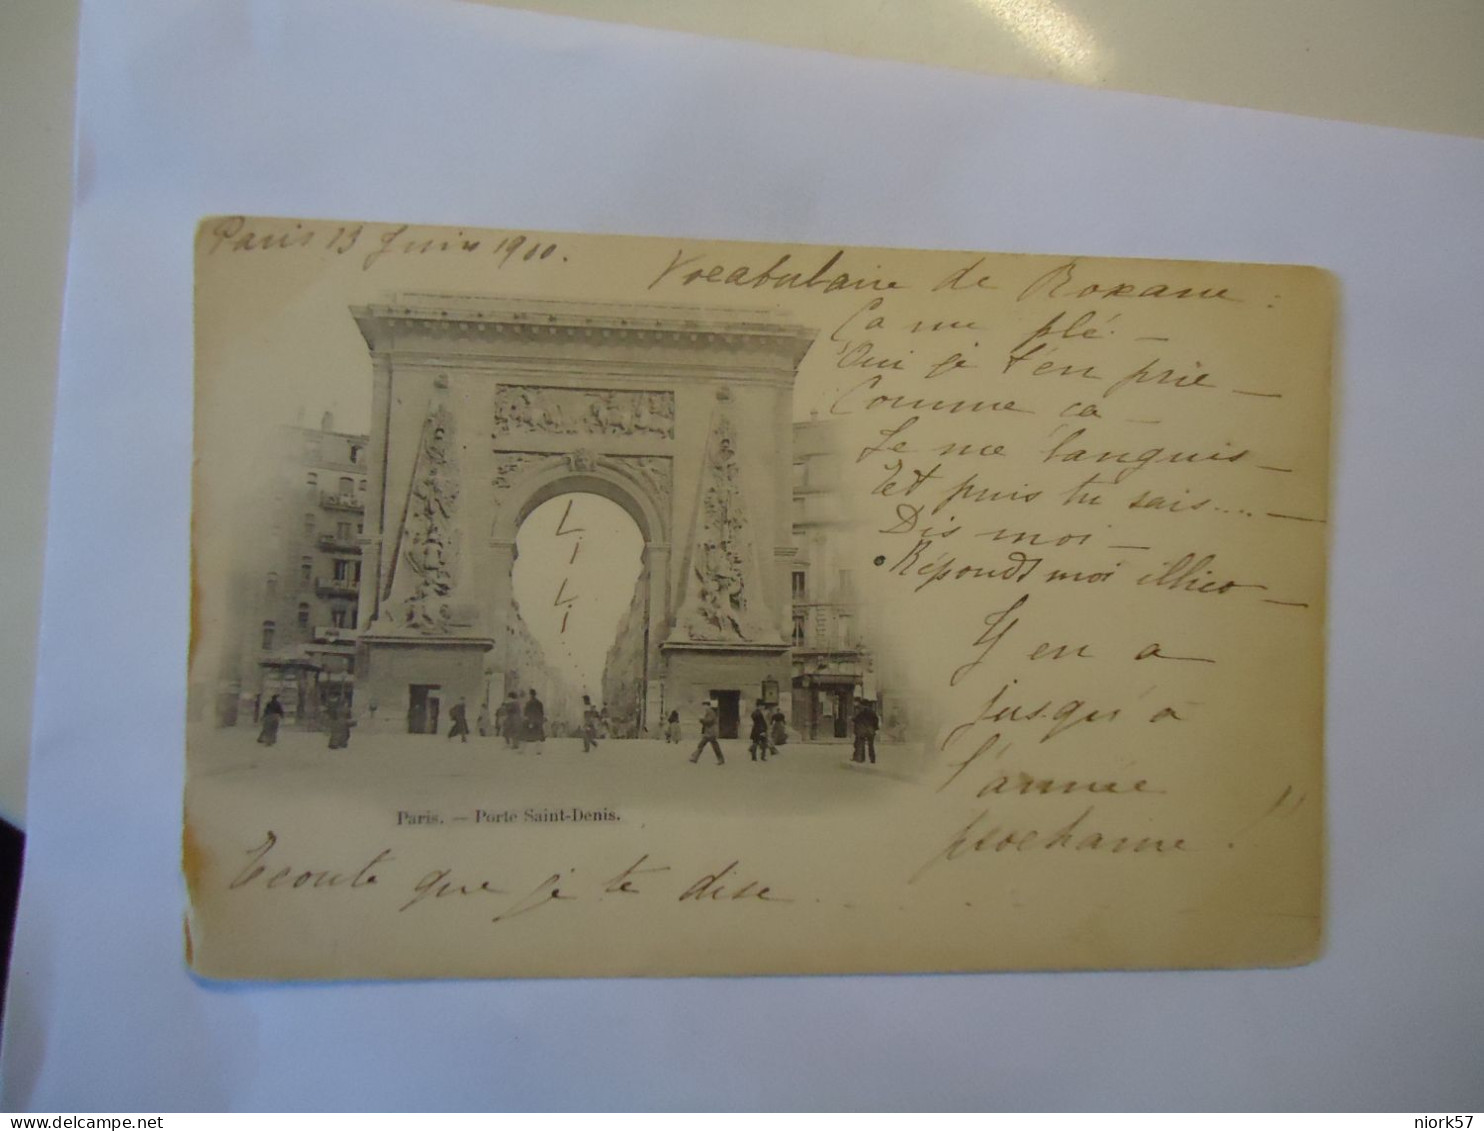 Paris 13 Juin 1900.
Vocabulaire de Roxane :
Ça me plé. —
Oui je t'en prie —
Comme ça —
Je me languis —
Et puis tu sais.... —
Dis moi —
Réponds moi illico —
Y en a
jusqu'à
l'année
prochaine !!
LiLi...
Paris. — Porte Saint-Denis.
Ecoute que je te dise.....
niork57